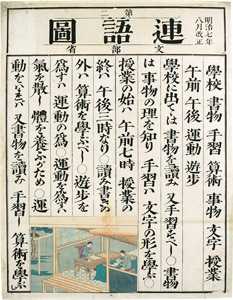 明治七年
八月改正
第
連語圖
文部省
學校 書物 手習 算術 事物 文字 授業
午前 午後 運動 遊歩
學校に出でゝは 書物を讀み 又手習をすべし ○書物
は 事物の理を知り 手習ハ 文字の形を學ぶ ○
授業の始ハ 午前 時 授業の
終ハ 午後三時なり ○讀み書きの
外ハ 算術を學ぶべし ○遊歩を
爲すハ 運動の爲 運動を爲すハ
氣を散し 體を養ふため ○運
動を 又書物を讀み 手習し 算術を學ぶべし